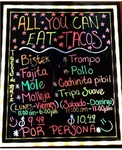 ALL YOU CAN
EAT TACOS
Bistek
Trompo
Fajita
Pollo
Mole
Cochinita pibil
Molleja
Tripa Suave
(Lunes-Viernes)
(Sabado-Domingo)
$9.49
$10.49
POR PERSONA